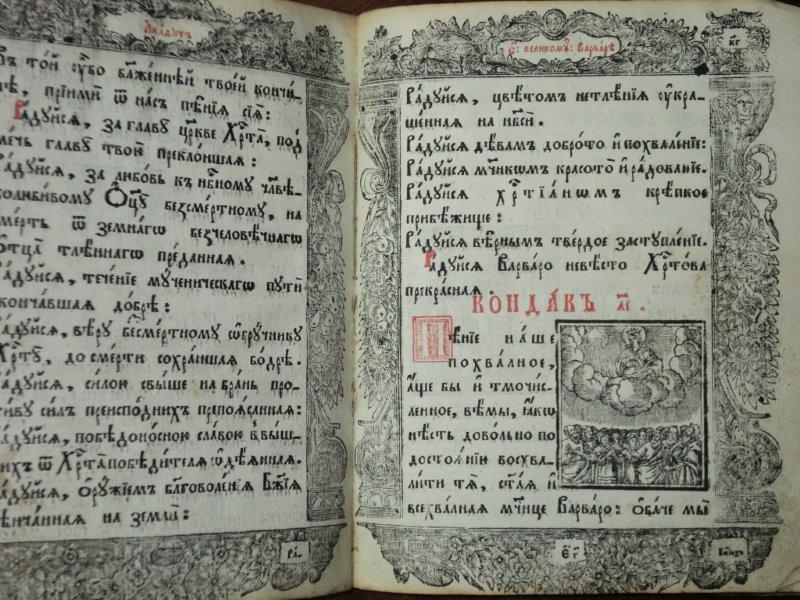 Акаѳістъ
въ той оубо блаженнѣй твоей кончи-
нѣ, прїими ѿ насъ пѣнїѧ сїѧ:
Радуйсѧ, за главу црⷦве Хрⷭта, под
мечь главу твою преклоншаѧ:
Радуйсѧ, за любовь къ нбⷭному члвѣ-
колюбивому Оц҃у безсмертному, на
смерть ѿ земнагѡ безчеловѣчнагѡ
Отца тлѣннагѡ преданнаѧ.
Радуйсѧ, теченїе мученическагѡ пути
скончавшаѧ добрѣ:
Радуйсѧ, вѣру безсмертному ѡбручнику
Хрⷭту, до смерти сохраншаѧ бодрѣ.
Радуйсѧ, силою свыше на брань про-
тиву силъ преисподнихъ препоѧсаннаѧ:
Радуйсѧ, побѣдоносною славою в выш-
нихъ ѿ Хрⷭта побѣдителѧ ѡдѣѧннаѧ.
Радуйсѧ, ѻружїемъ благоволенїѧ Бж҃їѧ
вѣнчаннаѧ на земли:
С҃: великому: Варварѣ
Радуйсѧ, цвѣтомъ нетлѣнїѧ оукра-
шеннаѧ на нб҃си.
Радуйсѧ дѣвамъ доброто и похваленїе:
Радуйсѧ мч҃никѡмъ красото и радованїе.
Радуйсѧ хрⷭтїанѡмъ крѣпкое
прибѣжище:
Радуйсѧ вѣрнымъ твердое заступленїе.
Радуйсѧ Варваро невѣсто Хрⷭтова
прекраснаѧ.
КОНДАКЪ аі.
Пѣнїе наше
похвалное,
аще бы и тмочис-
ленное, вѣмы, ꙗкѡ
нѣсть довольно по
достоѧнїю восхва-
лити тѧ, ст҃аѧ и
всехвалнаѧ мч҃нице Варваро: обаче мы